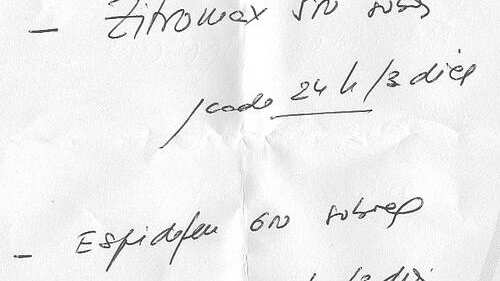 - Zitromax 500 sobres
/cada 24 h/3 dias
- Espidifen 600 sobres
/3 dias